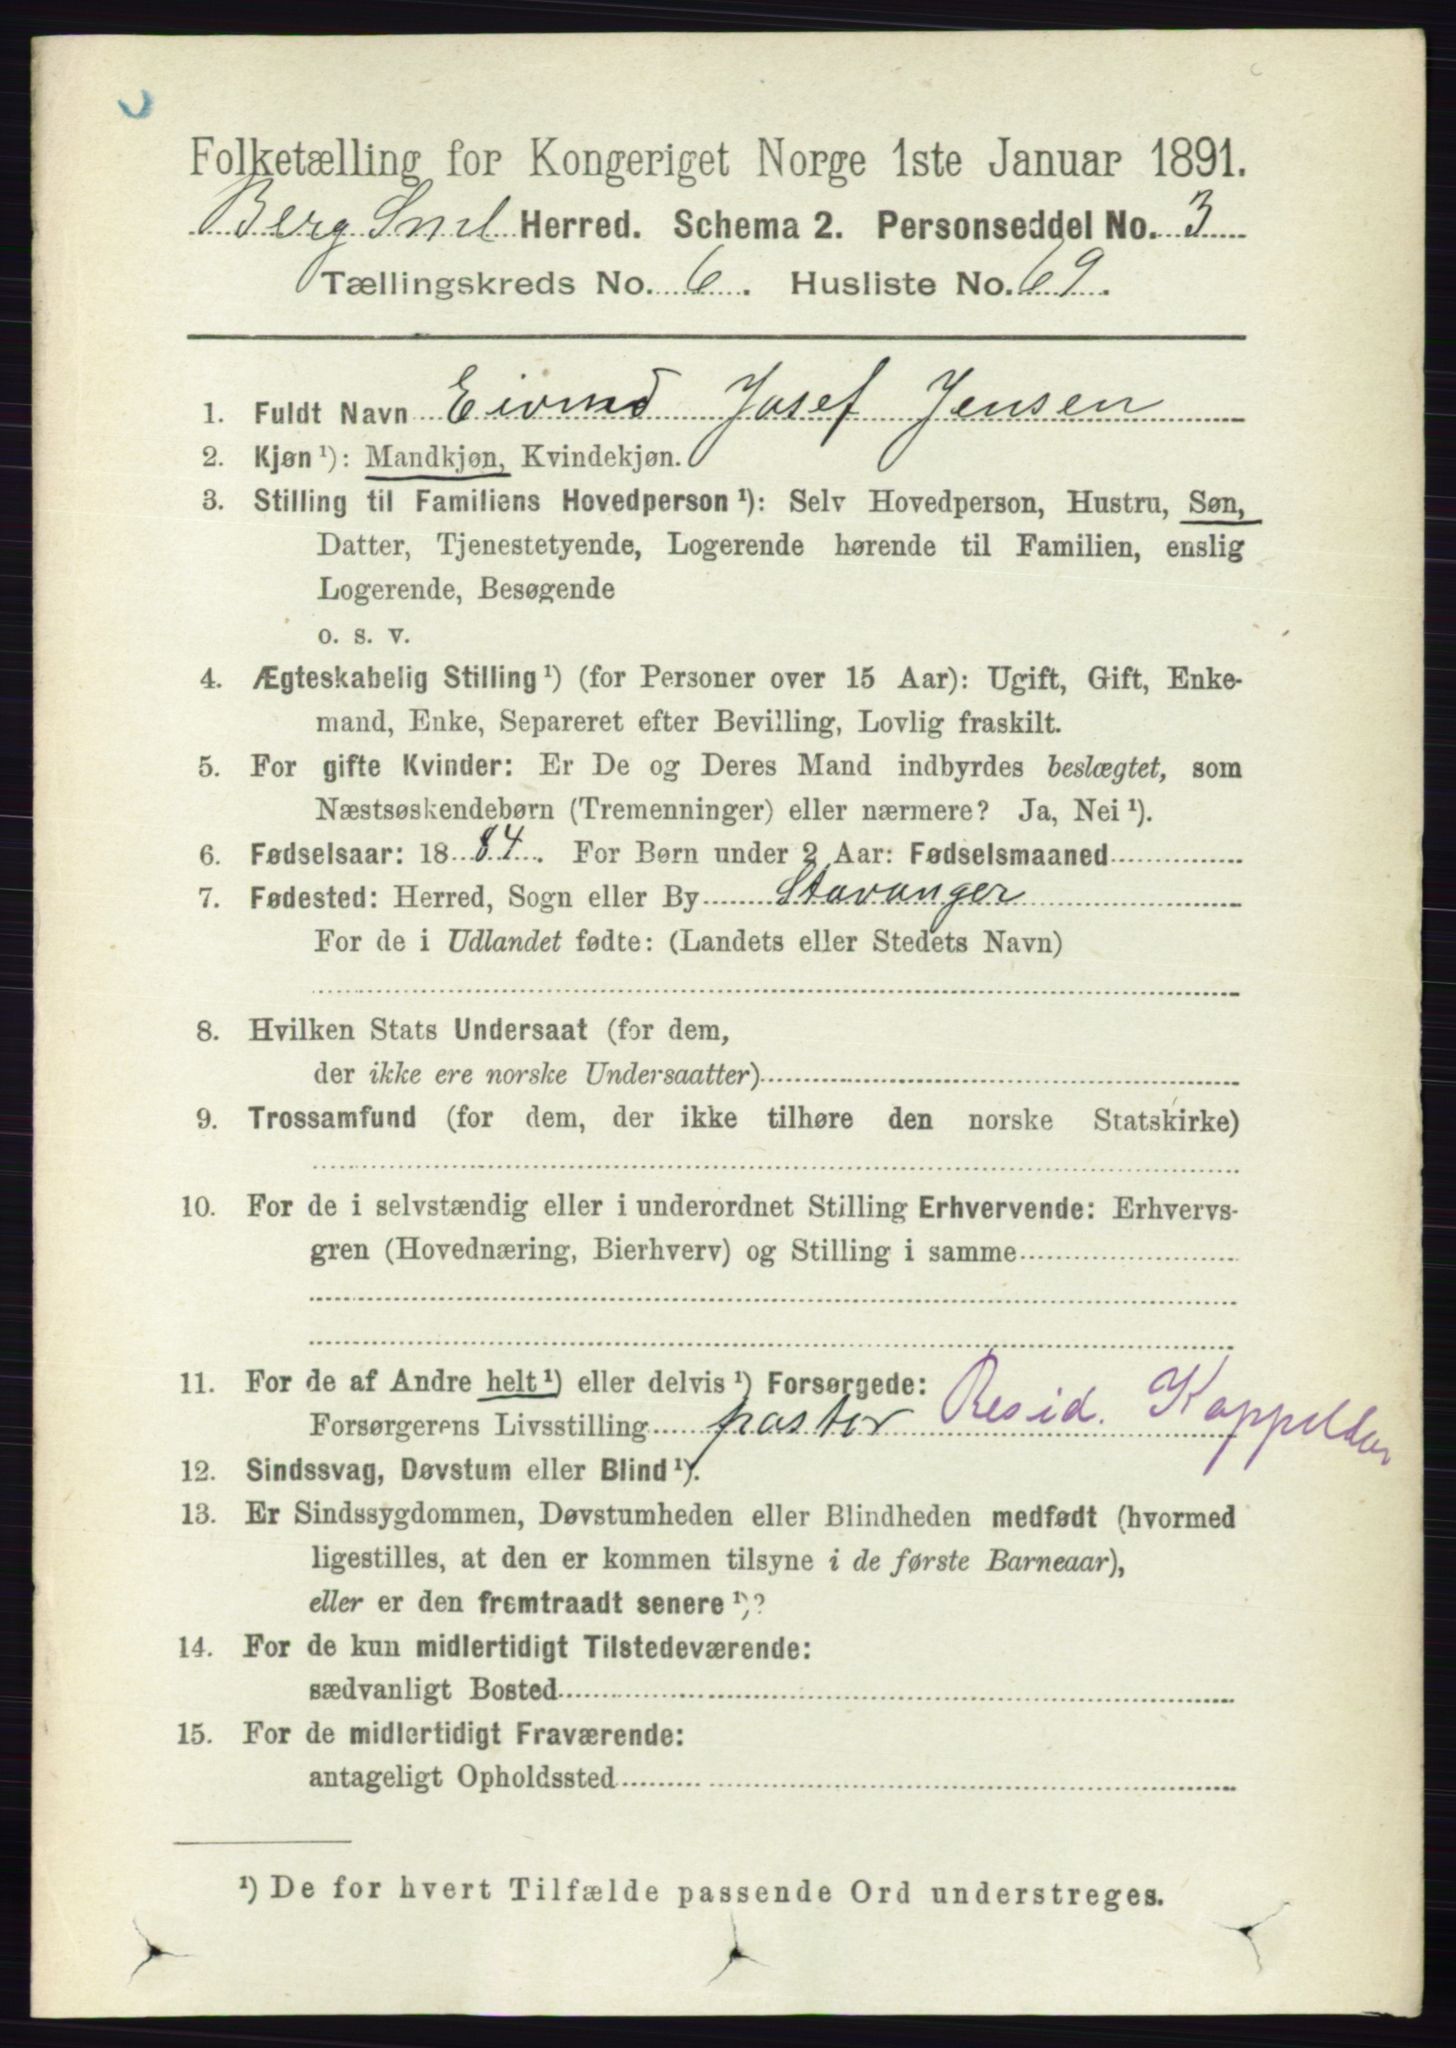 Folketælling for Kongeriget Norge 1ste Januar 1891.
Berg Sml Herred. Schema 2. Personseddel No. 3
Tællingskreds No. 6. Husliste No. 69.
1. Fuldt Navn Eivind Josef Jensen
2. Kjøn¹): Mandkjøn, Kvindekjøn.
3. Stilling til Familiens Hovedperson¹): Selv Hovedperson, Hustru, Søn,
Datter, Tjenestetyende, Logerende hørende til Familien, enslig
Logerende, Besøgende
o. s. v.
4. Ægteskabelig Stilling¹) (for Personer over 15 Aar): Ugift, Gift, Enke-
mand, Enke, Separeret efter Bevilling, Lovlig fraskilt.
5. For gifte Kvinder: Er De og Deres Mand indbyrdes beslægtet, som
Næstsøskendebørn (Tremenninger) eller nærmere? Ja, Nei¹).
6. Fødselsaar: 1884. For Børn under 2 Aar: Fødselsmaaned
7. Fødested: Herred, Sogn eller By Stavanger
For de i Udlandet fødte: (Landets eller Stedets Navn)
8. Hvilken Stats Undersaat (for dem,
der ikke ere norske Undersaatter)
9. Trossamfund (for dem, der ikke tilhøre den norske Statskirke)
10. For de i selvstændig eller i underordnet Stilling Erhvervende: Erhvervs-
gren (Hovednæring, Bierhverv) og Stilling i samme
11. For de af Andre helt¹) eller delvis¹) Forsørgede:
Forsørgerens Livsstilling pastor Resid. Kappellan
12. Sindssvag, Døvstum eller Blind¹).
13. Er Sindssygdommen, Døvstumheden eller Blindheden medfødt (hvormed
ligestilles, at den er kommen tilsyne i de første Barneaar),
eller er den fremtraadt senere¹)?
14. For de kun midlertidigt Tilstedeværende:
sædvanligt Bosted
15. For de midlertidigt Fraværende:
antageligt Opholdssted
¹) De for hvert Tilfælde passende Ord understreges.